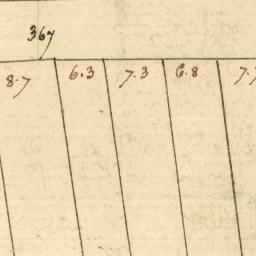 367
8.7 6.3 7.3 6.8 7.7